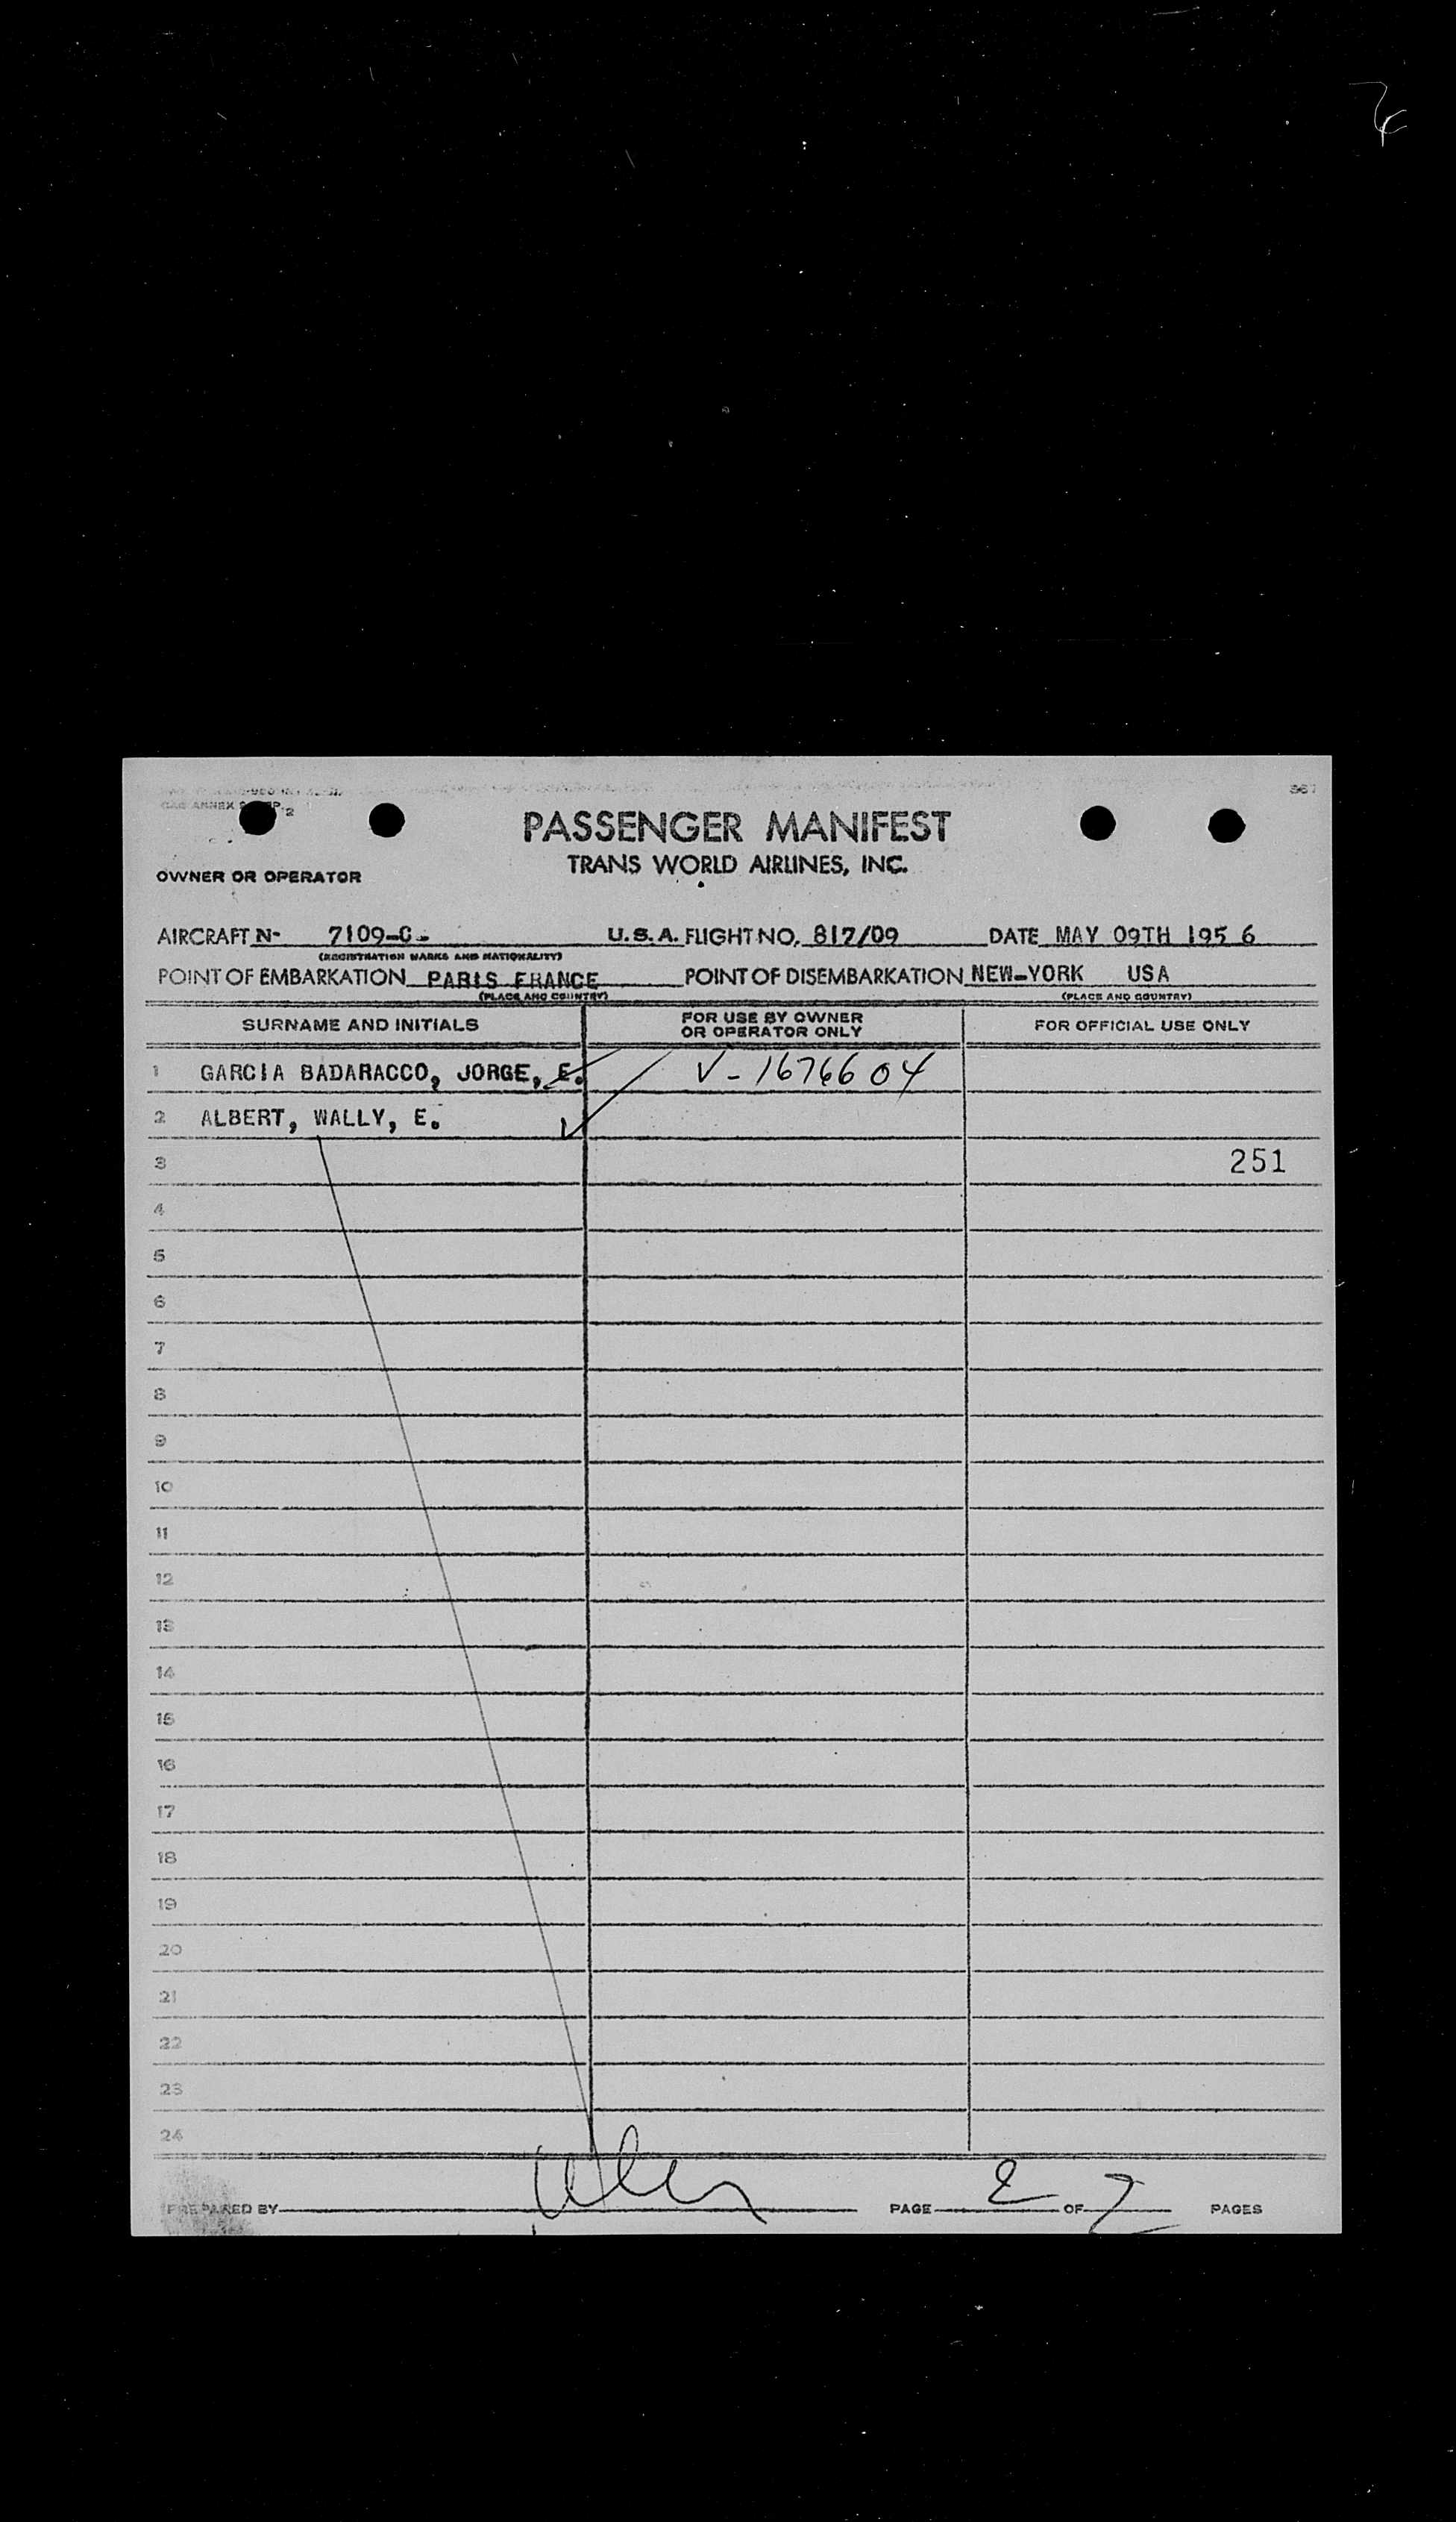 PASSENGER MANIFEST
TRANS WORLD AIRLINES, INC.
OWNER OR OPERATOR
AIRCRAFT N- 7109-C- U.S.A. FLIGHT NO. 817/09 DATE MAY 09TH 195 6
(REGISTRATION MARKS AND NATIONALITY)
POINT OF EMBARKATION PARIS FRANCE POINT OF DISEMBARKATION NEW-YORK USA
(PLACE AND COUNTRY) (PLACE AND COUNTRY)
SURNAME AND INITIALS FOR USE BY OWNER OR OPERATOR ONLY FOR OFFICIAL USE ONLY
1 GARCIA BADARACCO, JORGE, E. V-1676604
2 ALBERT, WALLY, E.
3 251
4
5
6
7
8
9
10
11
12
13
14
15
16
17
18
19
20
21
22
23
24
PREPARED BY PAGE 2 OF 2 PAGES